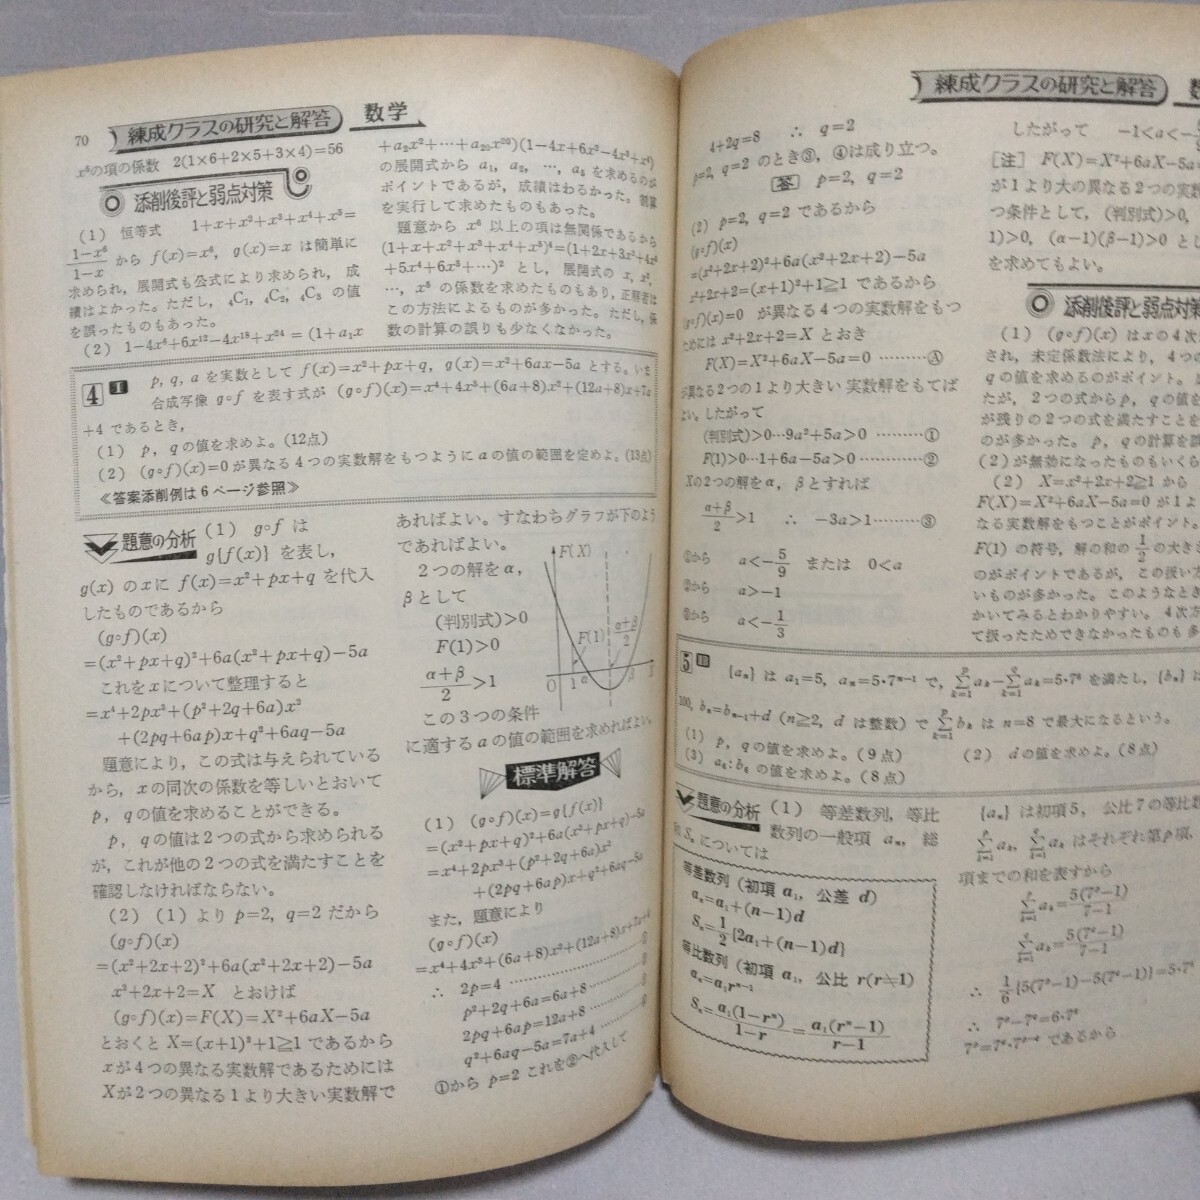 70
練成クラスの研究と解答 数学
x⁵の項の係数 2(1×6+2×5+3×4)=56
添削後評と弱点対策
(1) 恒等式 1+x+x²+x³+x⁴+x⁵=
(1−x⁶)/(1−x) から f(x)=x⁶, g(x)=x は簡単に
求められ,展開式も公式により求められ,成
績はよかった。ただし, ₄C₁, ₄C₂, ₄C₃ の値
を誤ったものもあった。
(2) 1−4x⁶+6x¹²−4x¹⁸+x²⁴=(1+a₁x
+a₂x²+…+a₂₀x²⁰)(1−4x+6x²−4x³+x⁴)
の展開式から a₁, a₂, …, a₅ を求めるのが
ポイントであるが,成績はわるかった。割算
を実行して求めたものもあった。
題意から x⁶ 以上の項は無関係であるから
(1+x+x²+x³+x⁴+x⁵)⁴=(1+2x+3x²+4x³
+5x⁴+6x⁵+…)² とし,展開式の x, x²,
…, x⁵ の係数を求めたものもあり,正解者は
この方法によるものが多かった。ただし,係
数の計算の誤りも少なくなかった。
4 I p, q, a を実数として f(x)=x²+px+q, g(x)=x²+6ax−5a とする。いま
合成写像 g∘f を表す式が (g∘f)(x)=x⁴+4x³+(6a+8)x²+(12a+8)x+7a
+4 であるとき,
(1) p, q の値を求めよ。(12点)
(2) (g∘f)(x)=0が異なる4つの実数解をもつように a の値の範囲を定めよ。(13点)
≪答案添削例は6ページ参照≫
題意の分析 (1) g∘f は
g{f(x)} を表し,
g(x) の x に f(x)=x²+px+q を代入
したものであるから
(g∘f)(x)
=(x²+px+q)²+6a(x²+px+q)−5a
これを x について整理すると
=x⁴+2px³+(p²+2q+6a)x²
+(2pq+6ap)x+q²+6aq−5a
題意により,この式は与えられている
から, x の同次の係数を等しいとおいて
p, q の値を求めることができる。
p, q の値は2つの式から求められる
が,これが他の2つの式を満たすことを
確認しなければならない。
(2) (1)より p=2, q=2 だから
(g∘f)(x)
=(x²+2x+2)²+6a(x²+2x+2)−5a
x²+2x+2=X とおけば
(g∘f)(x)=F(X)=X²+6aX−5a
とおくと X=(x+1)²+1≧1 であるから
x が4つの異なる実数解であるためには
X が2つの異なる1より大きい実数解で
あればよい。すなわちグラフが下のよう
であればよい。
2つの解を α,
β として
(判別式)>0
F(1)>0
(α+β)/2>1
この3つの条件
に適する a の値の範囲を求めればよい。
F(X)
F(1)
(α+β)/2
O 1 α β X
標準解答
(1) (g∘f)(x)=g{f(x)}
=(x²+px+q)²+6a(x²+px+q)−5a
=x⁴+2px³+(p²+2q+6a)x²
+(2pq+6ap)x+q²+6aq−5a
また,題意により
(g∘f)(x)
=x⁴+4x³+(6a+8)x²+(12a+8)x+7a+4
∴ 2p=4 ………①
p²+2q+6a=6a+8………②
2pq+6ap=12a+8………③
q²+6aq−5a=7a+4………④
①から p=2 これを②へ代入して
練成クラスの研究と解答
4+2q=8 ∴ q=2
p=2, q=2 のとき③,④は成り立つ。
答 p=2, q=2
(2) p=2, q=2 であるから
(g∘f)(x)
=(x²+2x+2)²+6a(x²+2x+2)−5a
x²+2x+2=(x+1)²+1≧1 であるから
(g∘f)(x)=0 が異なる4つの実数解をもつ
ためには x²+2x+2=X とおき
F(X)=X²+6aX−5a=0 ………Ⓐ
が異なる2つの1より大きい実数解をもてば
よい。したがって
(判別式)>0…9a²+5a>0 ………①
F(1)>0…1+6a−5a>0 ………②
Xの2つの解を α, β とすれば
(α+β)/2>1 ∴ −3a>1………③
①から a<−5/9 または 0<a
②から a>−1
③から a<−1/3
したがって −1<a<−
[注] F(X)=X²+6aX−5a=
が1より大の異なる2つの実数
つ条件として, (判別式)>0,
1)>0, (α−1)(β−1)>0 とし
を求めてもよい。
添削後評と弱点対策
(1) (g∘f)(x) は x の4次
され,未定係数法により, 4つの
q の値を求めるのがポイント。
たが, 2つの式から p, q の値を
が残りの2つの式を満たすことを
のが多かった。 p, q の計算を誤
(2)が無効になったものもいくら
(2) X=x²+2x+2≧1 から
F(X)=X²+6aX−5a=0 が1よ
なる実数解をもつことがポイント。
F(1) の符号,解の和の 1/2 の大き
のがポイントであるが,この扱い方
いものが多かった。このようなとき
かいてみるとわかりやすい。4次方
て扱ったためできなかったものも多
5 {aₙ} は a₁=5, aₙ=5・7ⁿ⁻¹ で, Σ(k=1→p) aₖ−Σ(k=1→q) aₖ=5・7⁸ を満たし, {bₙ} は
100, bₙ=bₙ₋₁+d (n≧2, d は整数) で Σ bₖ は n=8 で最大になるという。
(1) p, q の値を求めよ。(9点) (2) d の値を求めよ。(8点)
(3) の値を求めよ。(8点)
題意の分析 (1) 等差数列,等比
数列の一般項 aₙ, 総
和 Sₙ については
等差数列 (初項 a₁, 公差 d)
aₙ=a₁+(n−1)d
Sₙ=1/2{2a₁+(n−1)d}
等比数列 (初項 a₁, 公比 r(r≠1)
aₙ=a₁rⁿ⁻¹
Sₙ=a₁(1−rⁿ)/(1−r)=a₁(rⁿ−1)/(r−1)
{aₙ} は初項5, 公比7の等比数
Σ aₖ, Σ aₖ はそれぞれ第 p 項,
項までの和を表すから
Σ(k=1→p) aₖ=5(7ᵖ−1)/(7−1)
Σ(k=1→q) aₖ=5(7^q−1)/(7−1)
∴ 1/6{5(7ᵖ−1)−5(7^q−1)}=5・7⁸
∴ 7ᵖ−7^q=6・7⁸
であるから